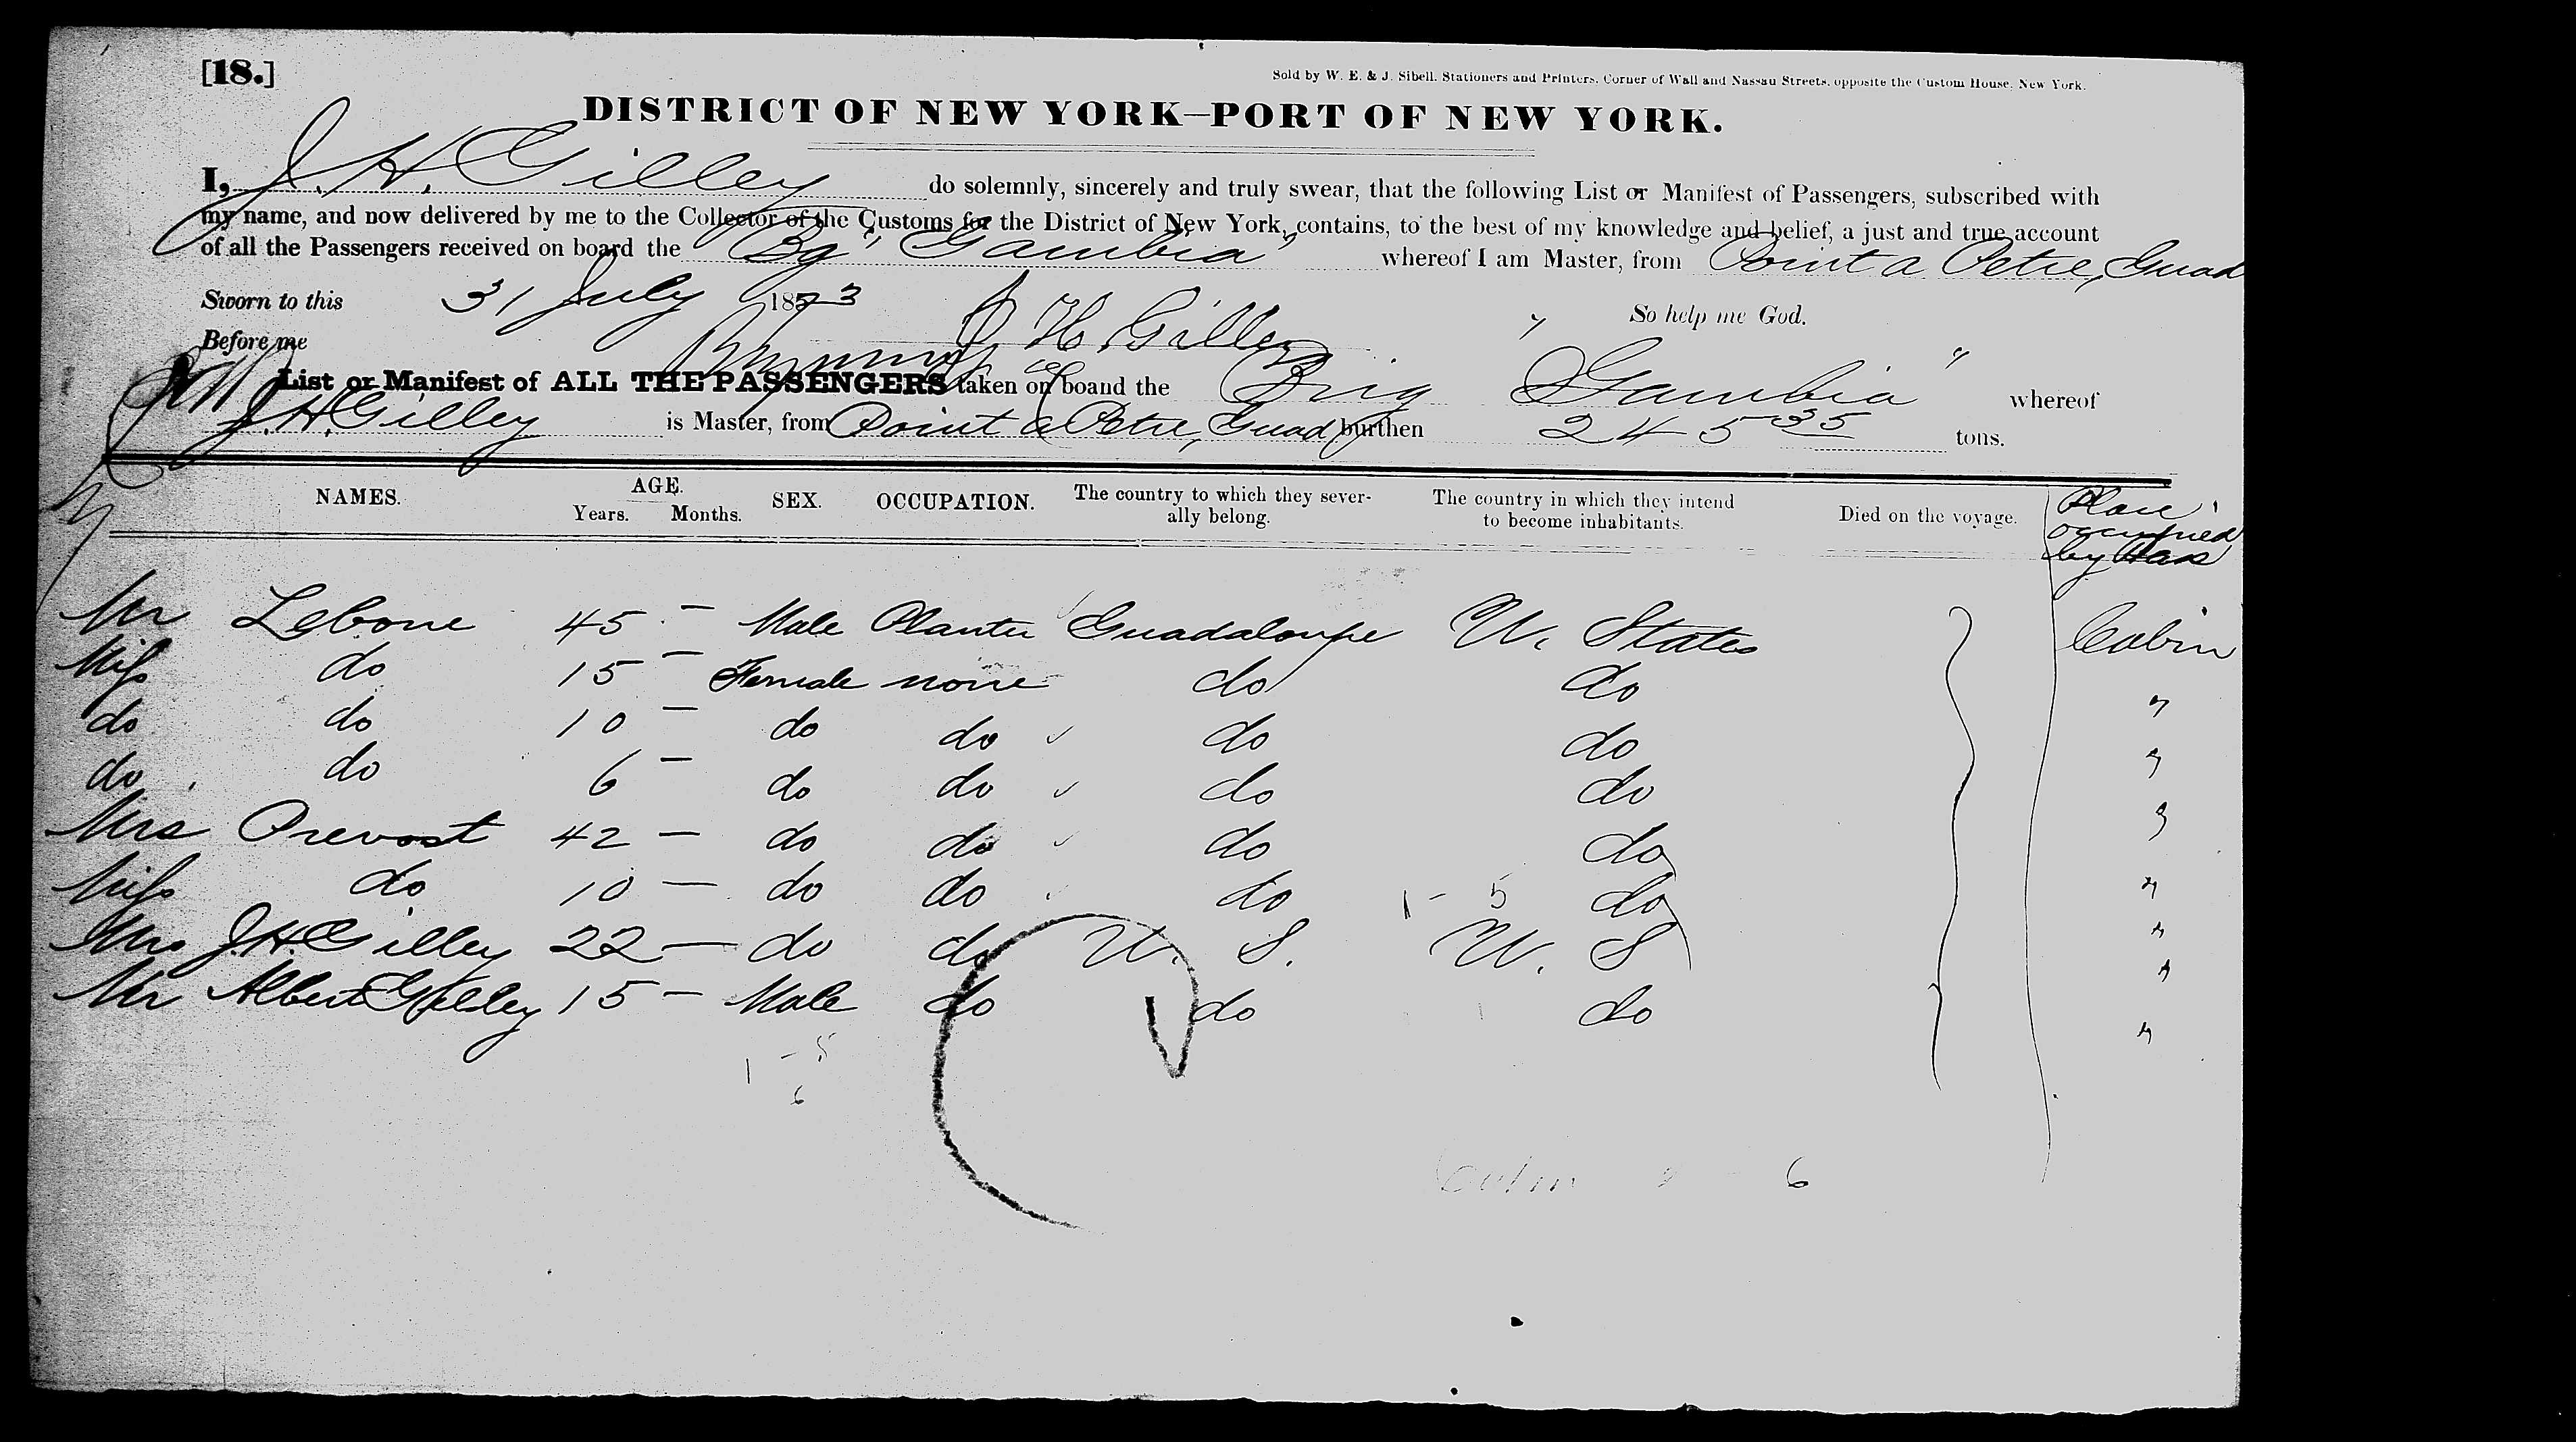 [18.]
Sold by W. E. & J. Sibell. Stationers and Printers. Corner of Wall and Nassau Streets, opposite the Custom House, New York.
DISTRICT OF NEW YORK—PORT OF NEW YORK.
I, J. H. Gilley do solemnly, sincerely and truly swear, that the following List or Manifest of Passengers, subscribed with
my name, and now delivered by me to the Collector of the Customs for the District of New York, contains, to the best of my knowledge and belief, a just and true account
of all the Passengers received on board the Bg "Gambia" whereof I am Master, from Point a Petre, Guad
Sworn to this 31 July 1873 So help me God.
J H. Gilley
Before me
List or Manifest of ALL THE PASSENGERS taken on boand the Brig "Gambia" whereof
J. H. Gilley is Master, from Point a Petre, Guad burthen 245 35 tons.
NAMES. AGE. Years. Months. SEX. OCCUPATION. The country to which they severally belong. The country in which they intend to become inhabitants. Died on the voyage. Place occupied by Pass
Mr Lebone 45 — Male Planter Guadaloupe U. States Cabin
Miss do 15 — Female none do do "
do do 10 — do do do do "
do do 6 — do do do do "
Mrs Prevost 42 — do do do do "
Miss do 10 — do do do 1 - 5 do "
Mrs J. H. Gilley 22 — do do U. S. U. S "
Mr Albert Gilley 15 — Male do do do "
1 - 5
6
Cabin 6